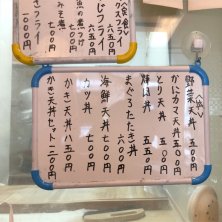 〈丼〉
野菜天丼 五〇〇円
かにカマ天丼 五五〇円
とり天丼 五五〇円
豚は丼 五五〇円
まぐろたたき丼 六〇〇円
海鮮天丼 七〇〇円
カツ丼 七〇〇円
かき天丼 八五〇円
かき天丼セット 一二〇〇円
〈定食〉
フライ 六五〇円
じフライ 六五〇円
魚の煮つけ 七〇〇円
みそ煮 七〇〇円
きフライ 一〇〇〇円